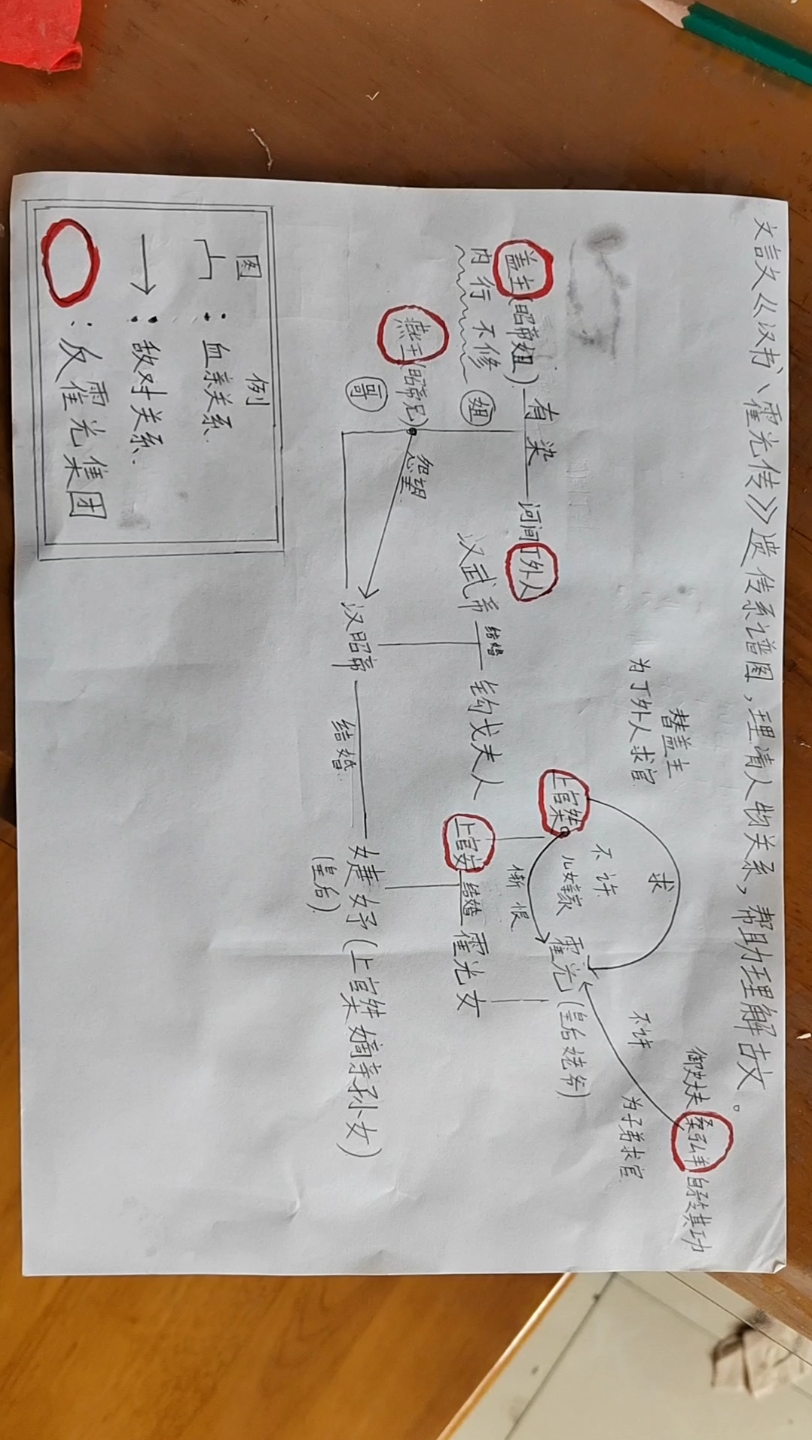 文言文《汉书、霍光传》遗传系谱图,理清人物关系,帮助理解古文。
御史大夫桑弘羊自矜其功
替盖主
为丁外人求官
不许
为子弟求官
求
盖主(昭帝姐)有染河间丁外人
内行不修
姐
上官桀
不许
儿女亲家
霍光(皇后姥爷)
惭恨
汉武帝结婚钩弋夫人
上官安结婚霍光女
燕王(昭帝兄)
哥
怨望
汉昭帝结婚婕妤(上官桀嫡亲孙女)
(皇后)
图例
:血亲关系.
→:敌对关系.
:反霍光集团